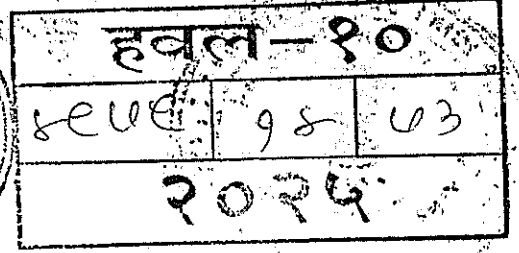 हवल-१०
४९५९ १४ ५३
२०२५